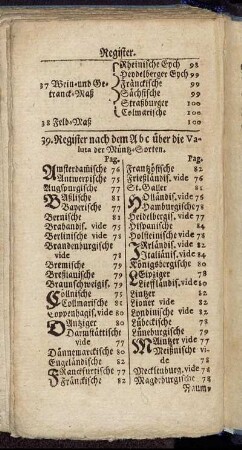 Register.
Rheinische Eych 98
Heydelberger Eych 99
37 Wein-und Ge-
tranck-Maß
Fränckische 99
Sächsische 99
Straßburger 100
Colmarische 100
38 Feld-Maß 100
39. Register nach dem A b c über die Va-
luta der Müntz-Sorten.
Pag.
Amsterdamische 76
Antwerpische 75
Augspurgische 77
Baßlische 81
Bayerische 77
Bernische 81
Brabandis. vide 75
Berlinische vide 78
Brandenburgische
vide 78
Bremische 79
Breßlauische 78
Braunschweigis. 79
Cöllnische 75
Collmarische 81
Coppenhagis. vide 80
Dantziger 80
Darmstättische
vide 77
Dännemarckische 80
Engeländische 82
Franckfurtische 77
Fränckische 82
Pag.
Frantzösische 82
Frießländis. vide 76
St. Galler 81
Holländis. vide 76
Hamburgische 79
Heidelbergis. vide 77
Hispanische 84
Holsteinische vide 78
Irländis. vide 82
Italiänis. vide 84
Königsbergische 80
Leipziger 78
Liefländis. vide 80
Lintzer 77
Lioner vide 82
Londinische vide 82
Lübeckische 78
Lüneburgische 79
Mäintzer vide 77
Meißnische vi-
de 78
Mecklenburg. vide 78
Magdeburgische 78